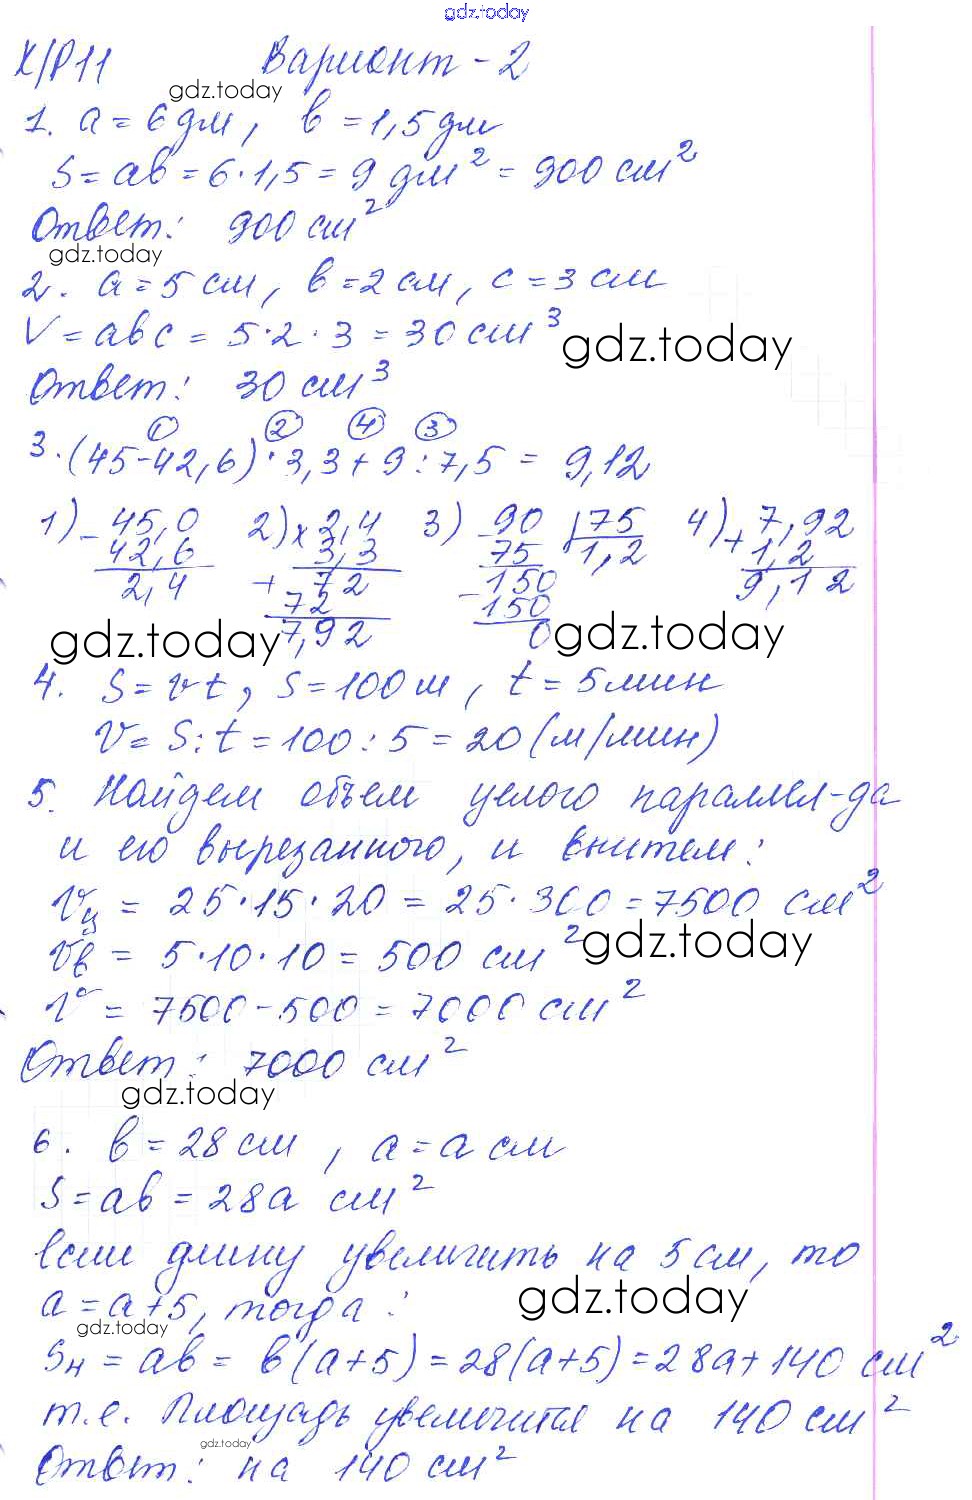 gdz.today
К/Р11 Вариант - 2
gdz.today
1. a = 6 дм, b = 1,5 дм
S = ab = 6 · 1,5 = 9 дм² = 900 см²
Ответ: 900 см²
gdz.today
2. a = 5 см, b = 2 см, c = 3 см
V = abc = 5 · 2 · 3 = 30 см³
gdz.today
Ответ: 30 см³
① ② ④ ③
3. (45 - 42,6) · 3,3 + 9 : 7,5 = 9,12
1) - 45,0 2) x 2,4 3) - 90 | 75 4) + 7,92
42,6 3,3 75 1,2 1,2
2,4 + 72 - 150 9,12
72 150
7,92 0
gdz.today gdz.today
4. S = vt, S = 100 м, t = 5 мин
V = S : t = 100 : 5 = 20 (м/мин)
5. Найдем объем целого параллел-да
и его вырезанного, и внитем:
Vц = 25 · 15 · 20 = 25 · 300 = 7500 см²
Vв = 5 · 10 · 10 = 500 см²
gdz.today
V = 7500 - 500 = 7000 см²
Ответ: 7000 см²
gdz.today
6. b = 28 см, a = a см
S = ab = 28a см²
если длину увеличить на 5 см, то
a = a + 5, тогда:
gdz.today
gdz.today
Sн = ab = b(a+5) = 28(a+5) = 28a + 140 см²
т.е. Площадь увеличится на 140 см²
gdz.today
Ответ: на 140 см²